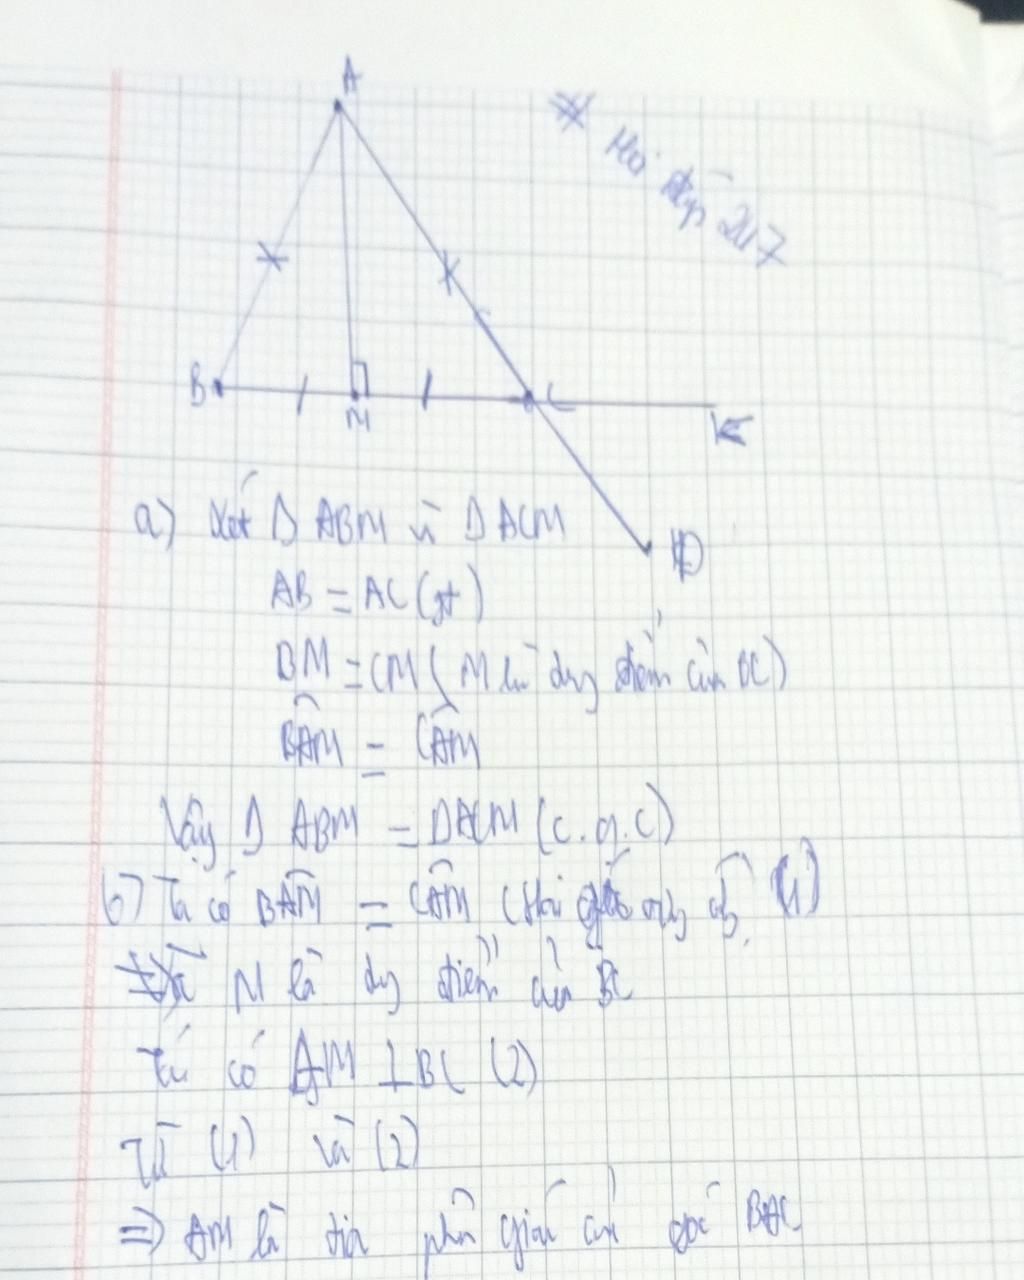 A
* Hỏi đáp 247
B
M
C
K
D
a) Xét Δ ABM và Δ ACM
AB = AC (gt)
BM = CM ( M là trung điểm của BC)
BAM = CAM
Vậy Δ ABM = Δ ACM (c.g.c)
b) Ta có BAM = CAM (Hai góc (1)
M là trung điểm của BC
Ta có AM ⊥ BC (2)
Từ (1) và (2)
=> AM là tia phân giác của góc BAC